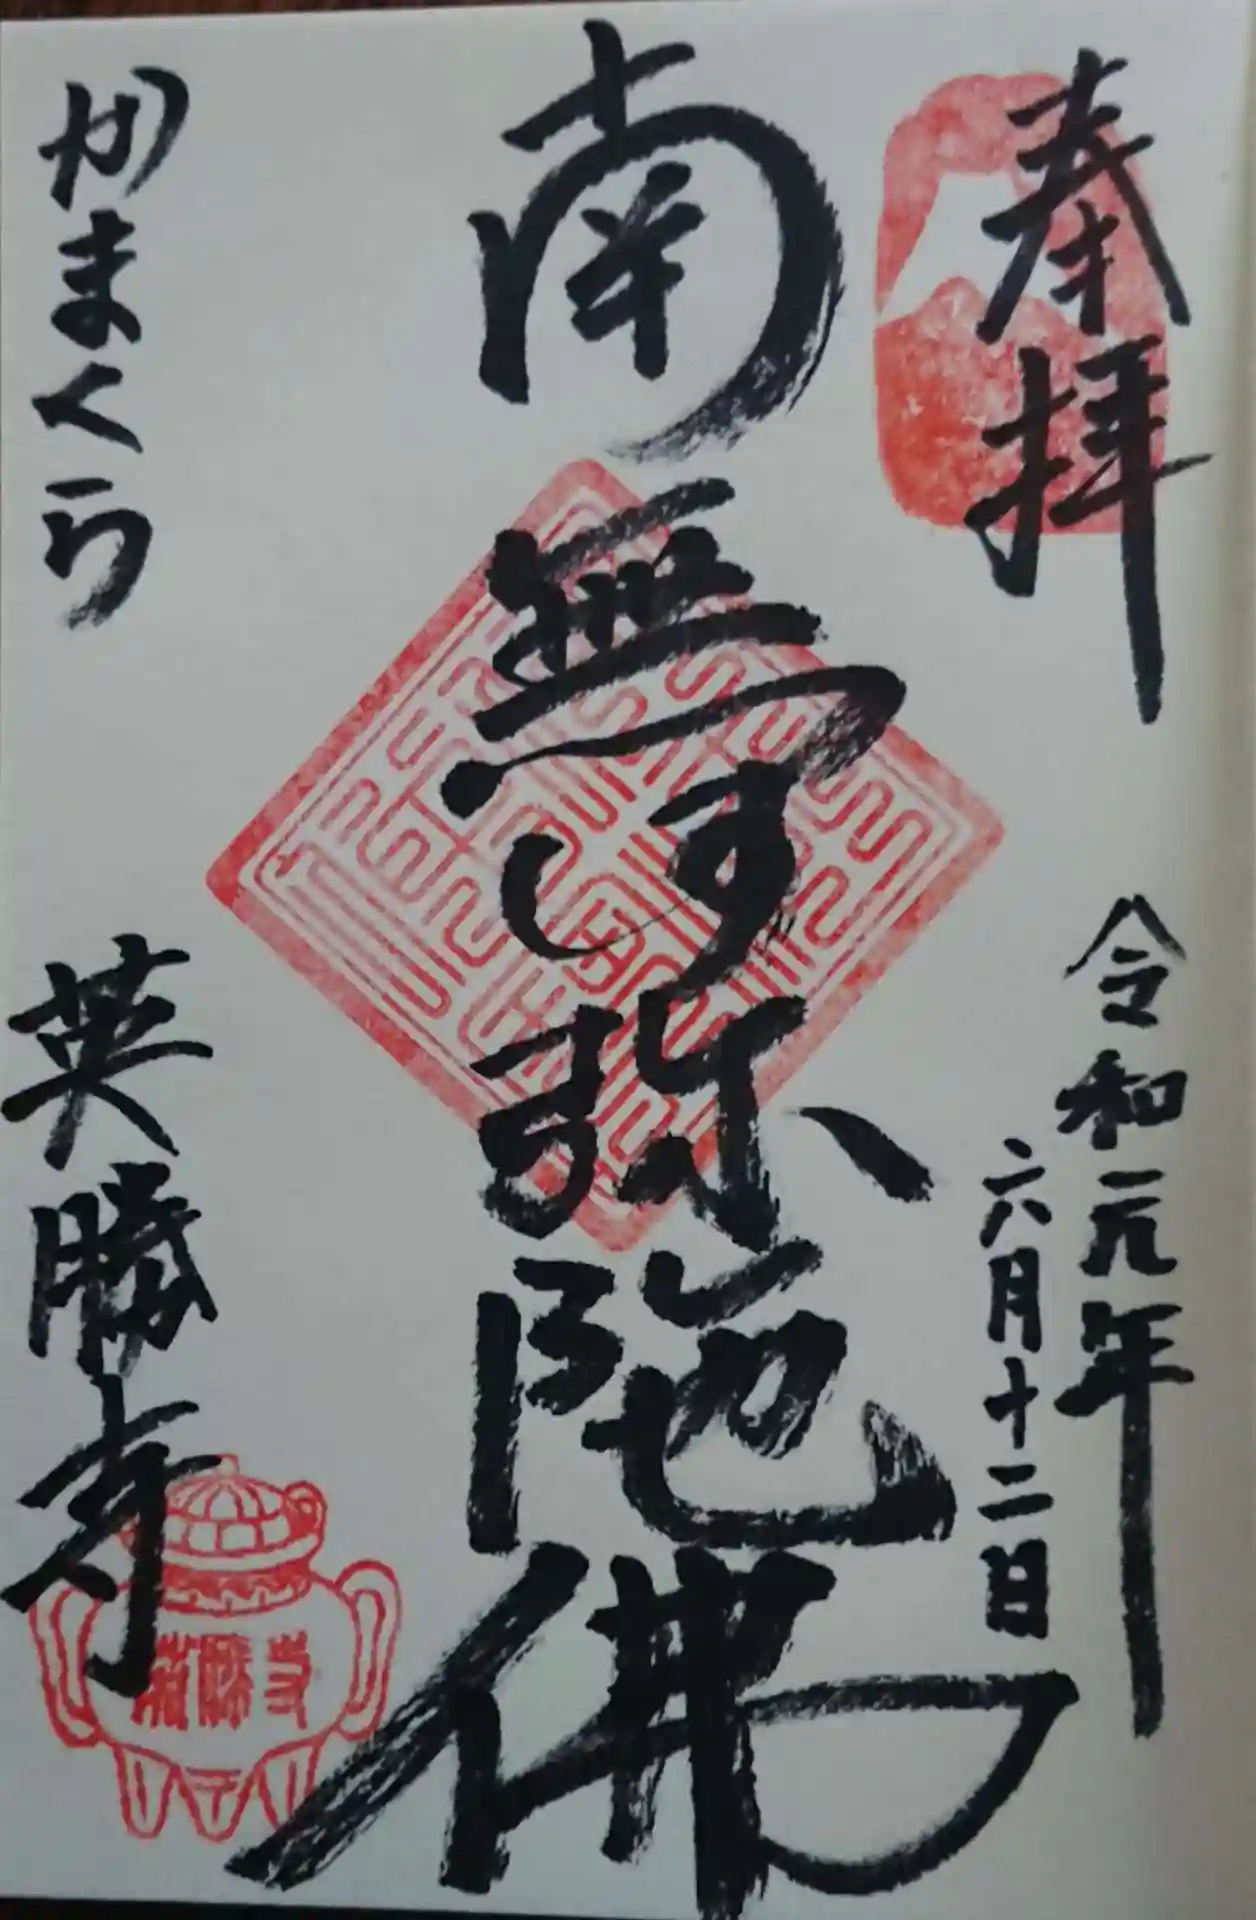 奉拝
令和元年
六月十二日
南無阿弥陀佛
かまくら
英勝寺
英勝寺